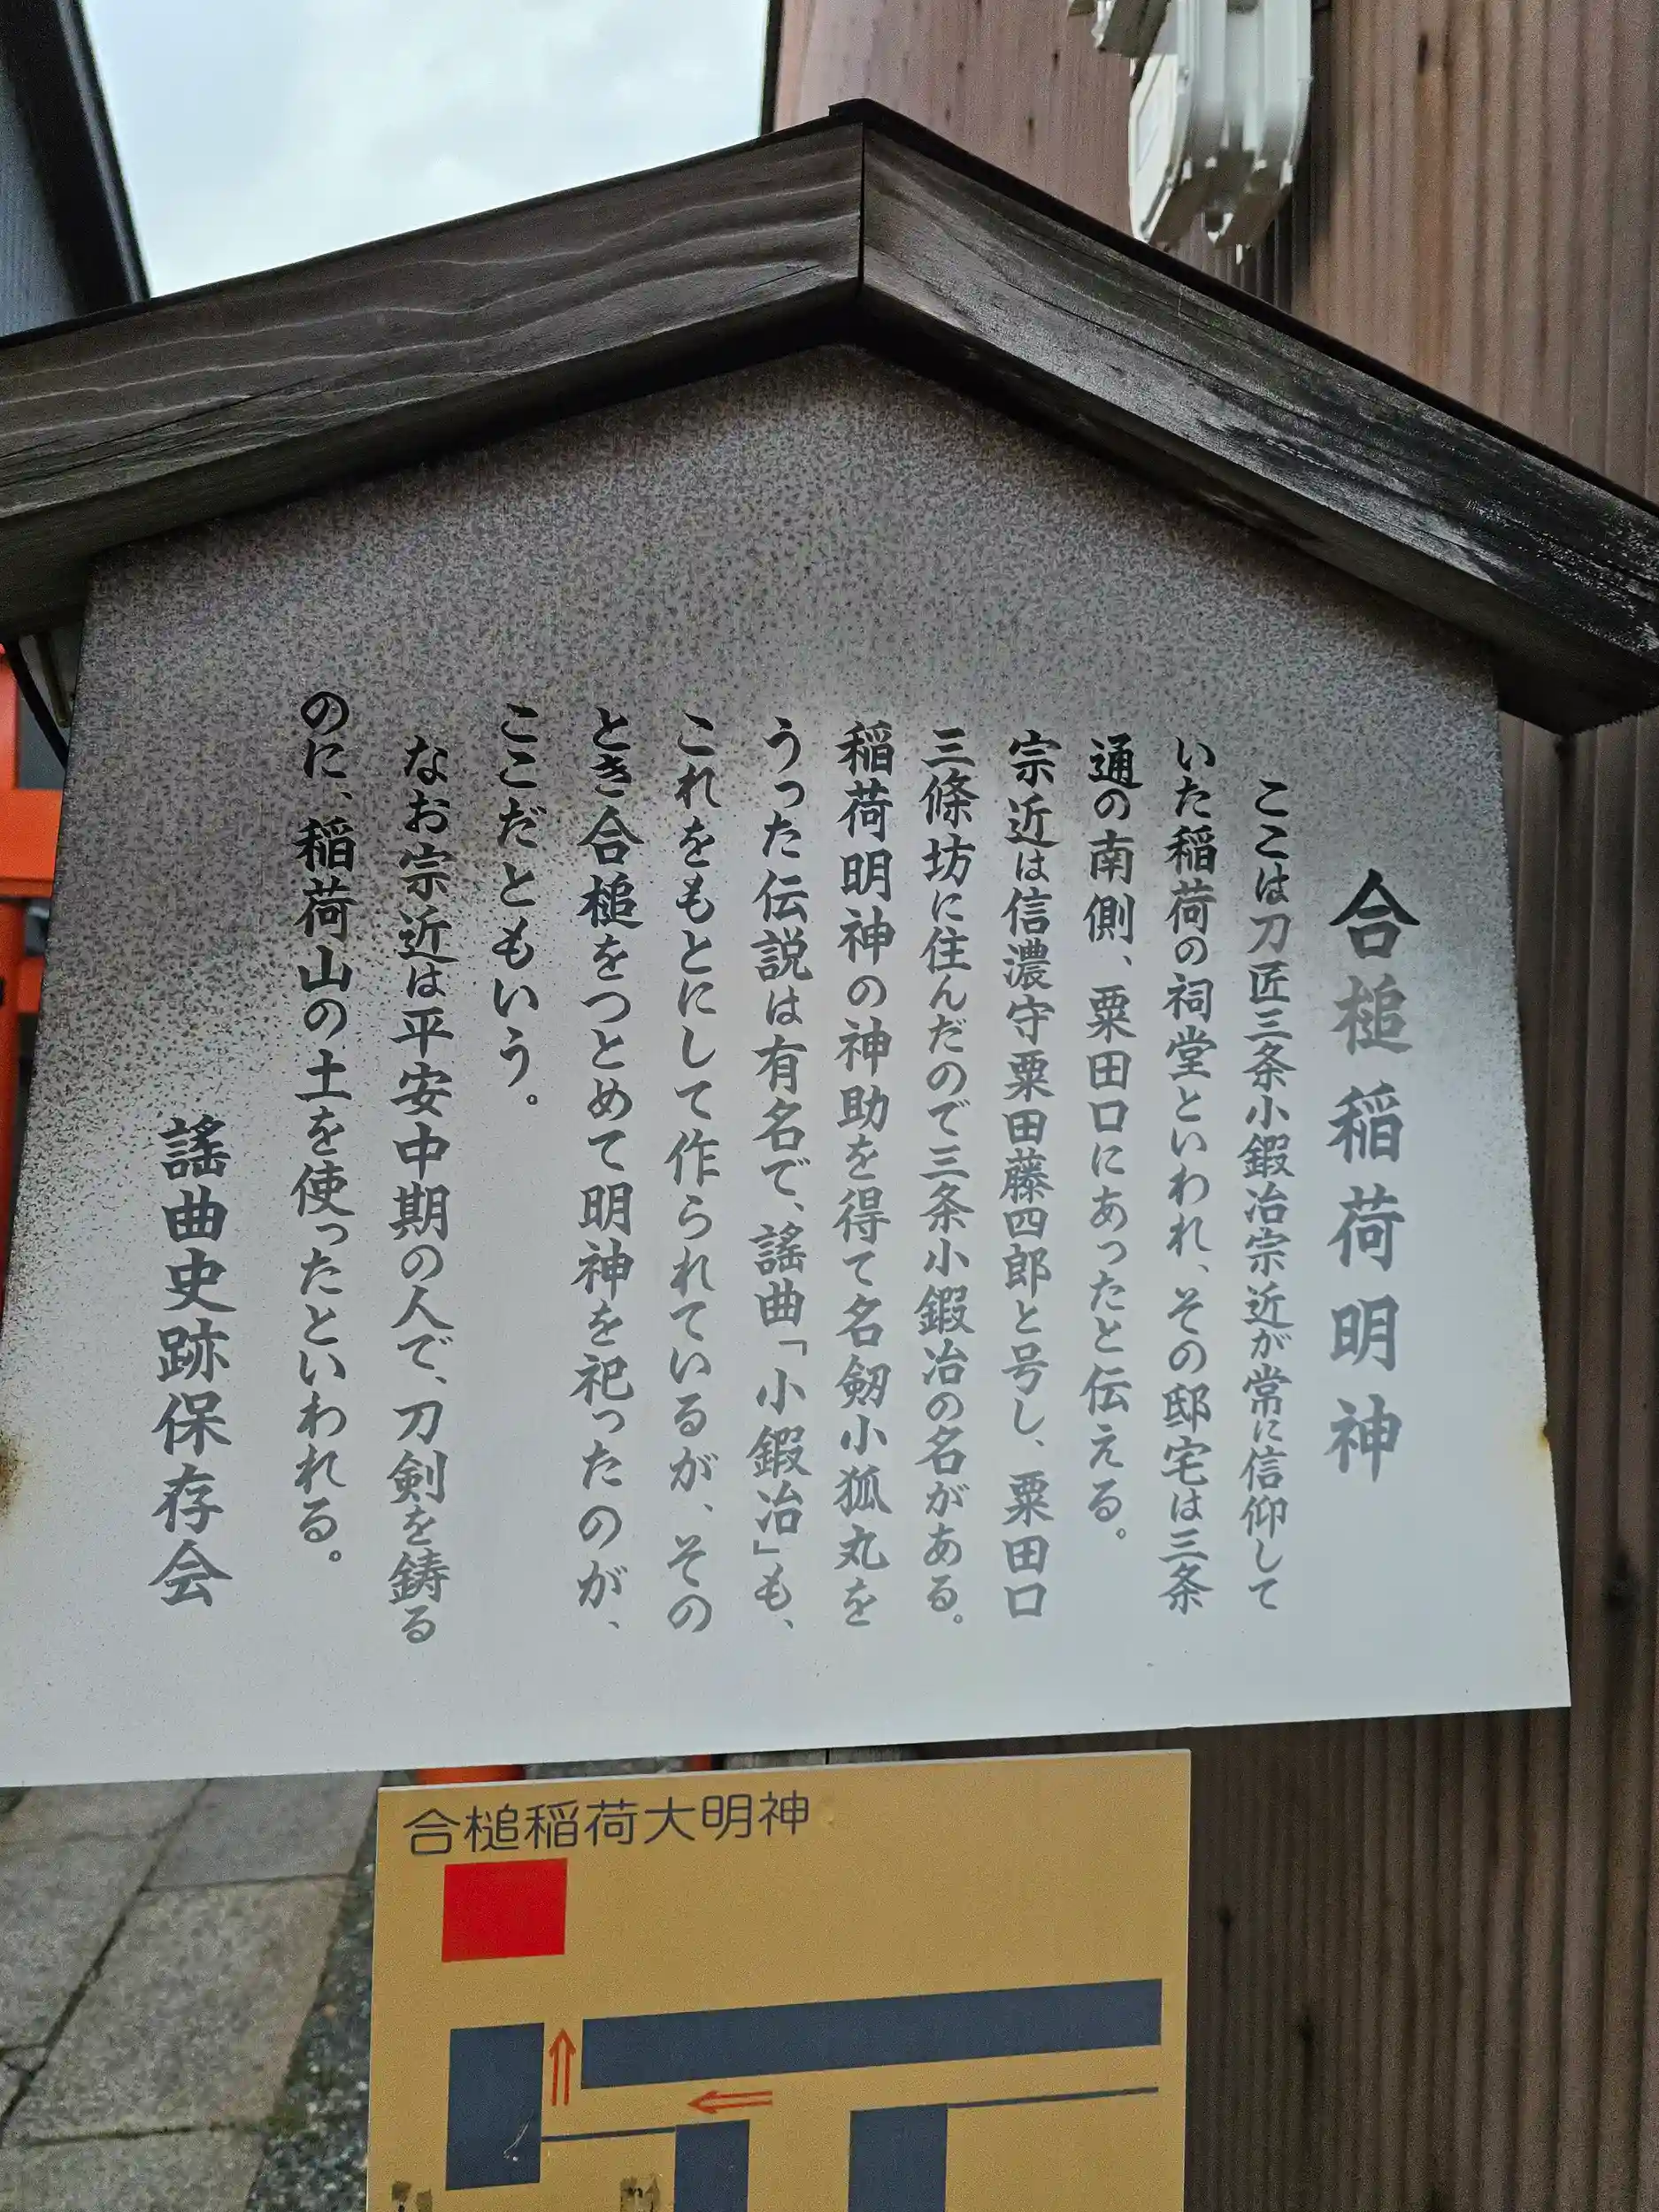 合槌稲荷明神
ここは刀匠三条小鍛冶宗近が常に信仰して
いた稲荷の祠堂といわれ、その邸宅は三条
通の南側、粟田口にあったと伝える。
宗近は信濃守粟田藤四郎と号し、粟田口
三條坊に住んだので三条小鍛冶の名がある。
稲荷明神の神助を得て名剱小狐丸を
うった伝説は有名で、謡曲「小鍛冶」も、
これをもとにして作られているが、その
とき合槌をつとめて明神を祀ったのが、
ここだともいう。
なお宗近は平安中期の人で、刀剣を鋳る
のに、稲荷山の土を使ったといわれる。
謡曲史跡保存会
合槌稲荷大明神